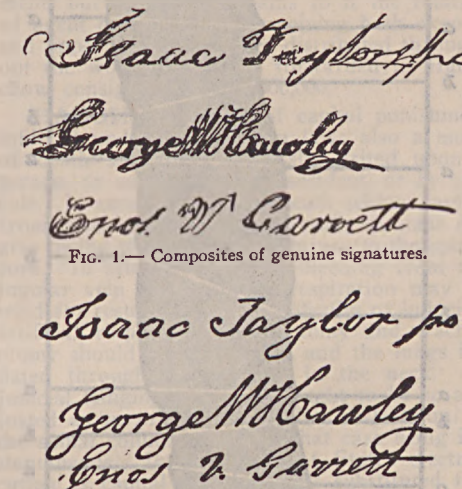 Isaac Taylor
George W Hawley
Enos V Garrett
FIG. 1.— Composites of genuine signatures.
Isaac Taylor po
George W Hawley
Enos V. Garrett